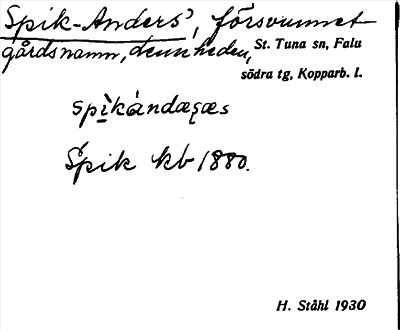 Spik-Anders', försvunnet
gårdsnamn, Lennheden,
St. Tuna sn, Falu
södra tg, Kopparb. l.
spìkándæṣæs
Spik kb 1880.
H. Ståhl 1930